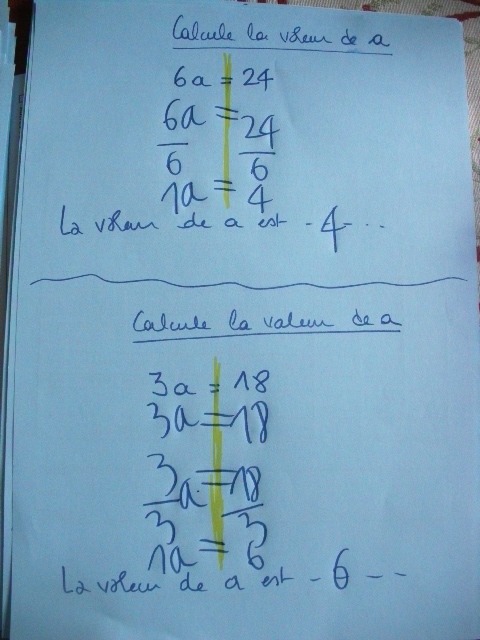 Calcule la valeur de a
6a = 24
6a/6 = 24/6
1a = 4
La valeur de a est - 4 - . .
Calcule la valeur de a
3a = 18
3a = 18
3/3 a = 18/3
1a = 6
La valeur de a est - 6 - -